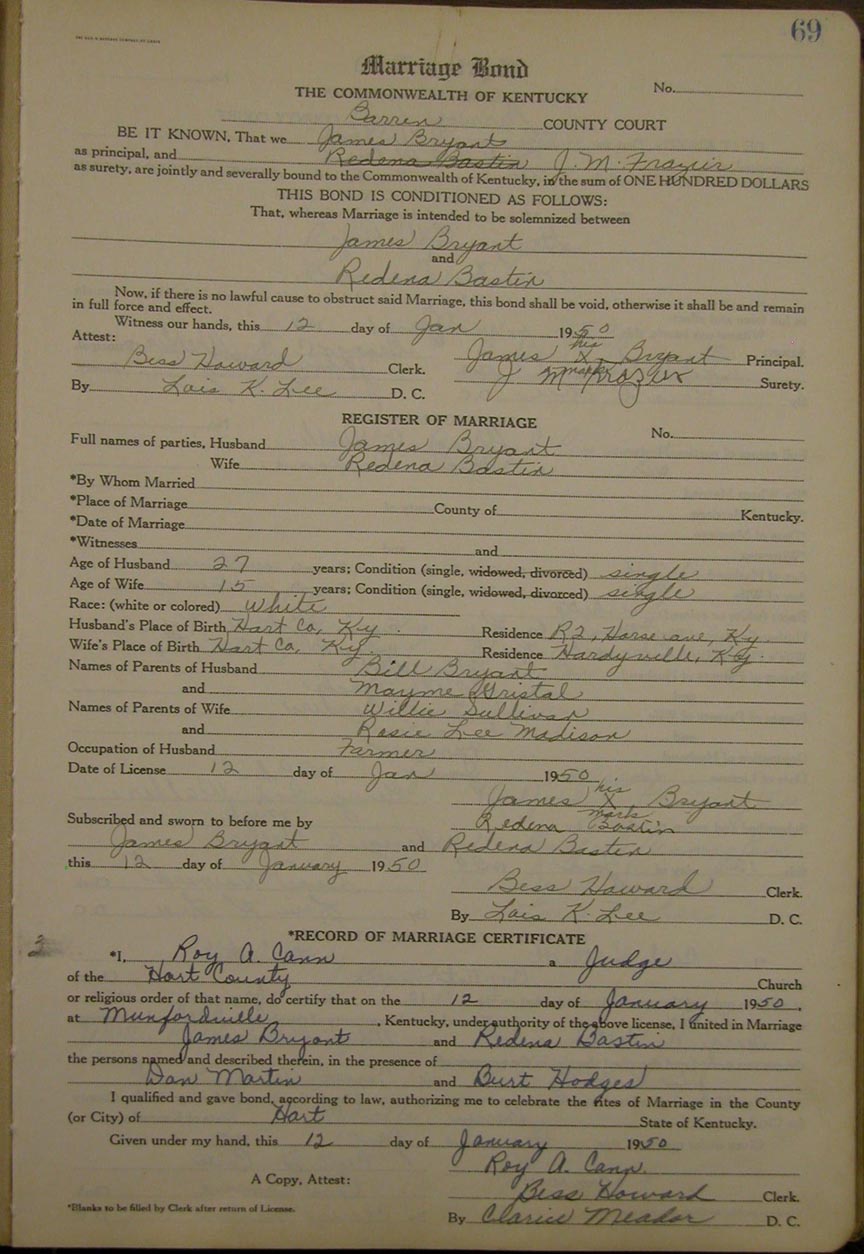 69
Marriage Bond
THE COMMONWEALTH OF KENTUCKY No.
Barren COUNTY COURT
BE IT KNOWN, That we James Bryant
as principal, and Redena Bastin J. M. Frazier
as surety, are jointly and severally bound to the Commonwealth of Kentucky, in the sum of ONE HUNDRED DOLLARS
THIS BOND IS CONDITIONED AS FOLLOWS:
That, whereas Marriage is intended to be solemnized between
James Bryant
and
Redena Bastin
Now, if there is no lawful cause to obstruct said Marriage, this bond shall be void, otherwise it shall be and remain
in full force and effect.
Witness our hands, this 12 day of Jan 1950
Attest: James his X mark Bryant Principal.
Bess Howard Clerk.
J. M Frazier Surety.
By Lois K. Lee D. C.
REGISTER OF MARRIAGE
Full names of parties, Husband James Bryant No.
Wife Redena Bastin
*By Whom Married
*Place of Marriage County of Kentucky.
*Date of Marriage
*Witnesses and
Age of Husband 27 years; Condition (single, widowed, divorced) single
Age of Wife 15 years; Condition (single, widowed, divorced) single
Race: (white or colored) White
Husband's Place of Birth Hart Co, Ky. Residence R2, Horse ave, Ky.
Wife's Place of Birth Hart Co, Ky. Residence Hardyville, Ky.
Names of Parents of Husband Bill Bryant
and Mayme
Names of Parents of Wife Willie Sullivan
and Rosie Lee Madison
Occupation of Husband Farmer
Date of License 12 day of Jan 1950
James his X mark Bryant
Subscribed and sworn to before me by Redena Bastin
James Bryant and Redena Bastin
this 12 day of January 1950
Bess Howard Clerk.
By Lois K. Lee D. C.
*RECORD OF MARRIAGE CERTIFICATE
*I, Roy A. Cann a Judge
of the Hart County Church
or religious order of that name, do certify that on the 12 day of January 1950,
at Munfordville, Kentucky, under authority of the above license, I united in Marriage
James Bryant and Redena Bastin
the persons named and described therein, in the presence of
Dan Martin and Burt Hodges
I qualified and gave bond, according to law, authorizing me to celebrate the rites of Marriage in the County
(or City) of Hart State of Kentucky.
Given under my hand, this 12 day of January 1950
Roy A. Cann.
A Copy, Attest:
Bess Howard Clerk.
*Blanks to be filled by Clerk after return of License.
By Clarice Meador D. C.